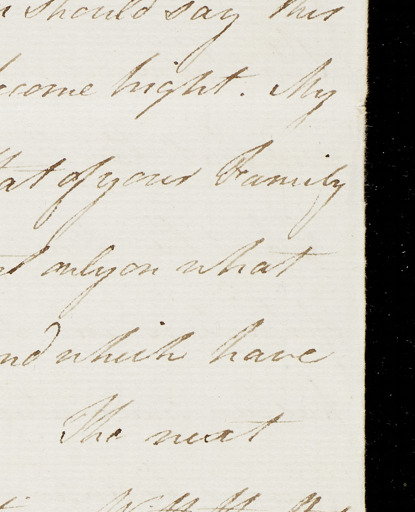 should say this
become hight. My
that of your Family
only on what
and which have
The next